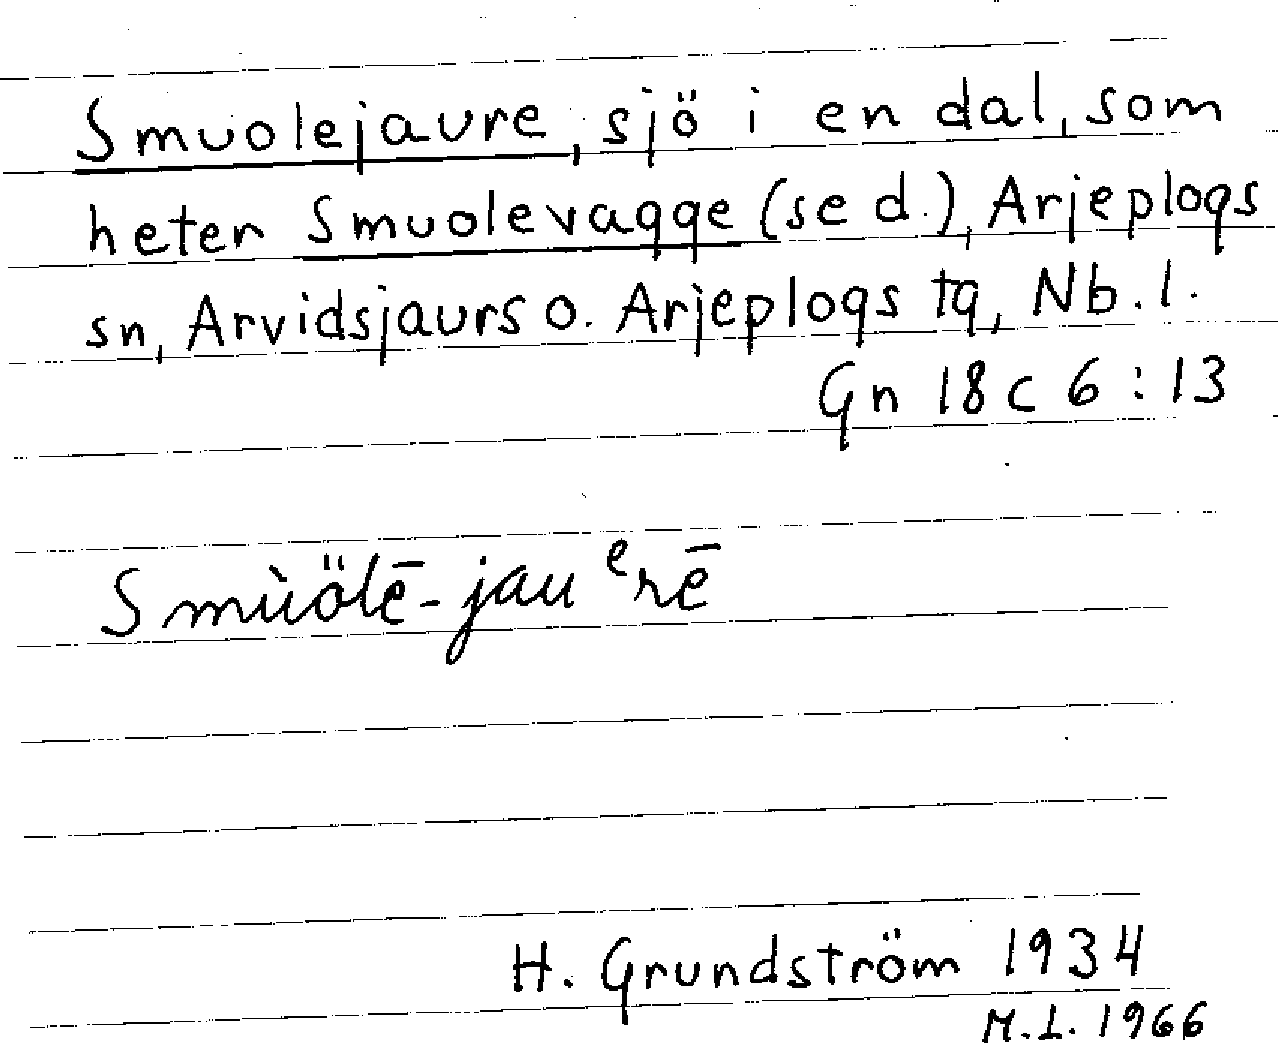 Smuolejaure, sjö i en dal, som
heter Smuolevagge (se d.), Arjeplogs
sn, Arvidsjaurs o. Arjeplogs tg, Nb. l.
Gn 18 c 6 : 13
Smu̇ölē-jau ᵉrē
H. Grundström 1934
M.L. 1966